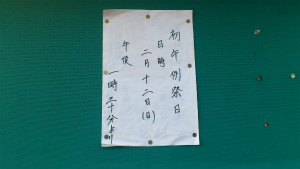 初午例祭日
日時
二月十二日(日)
午後
一時三十分より